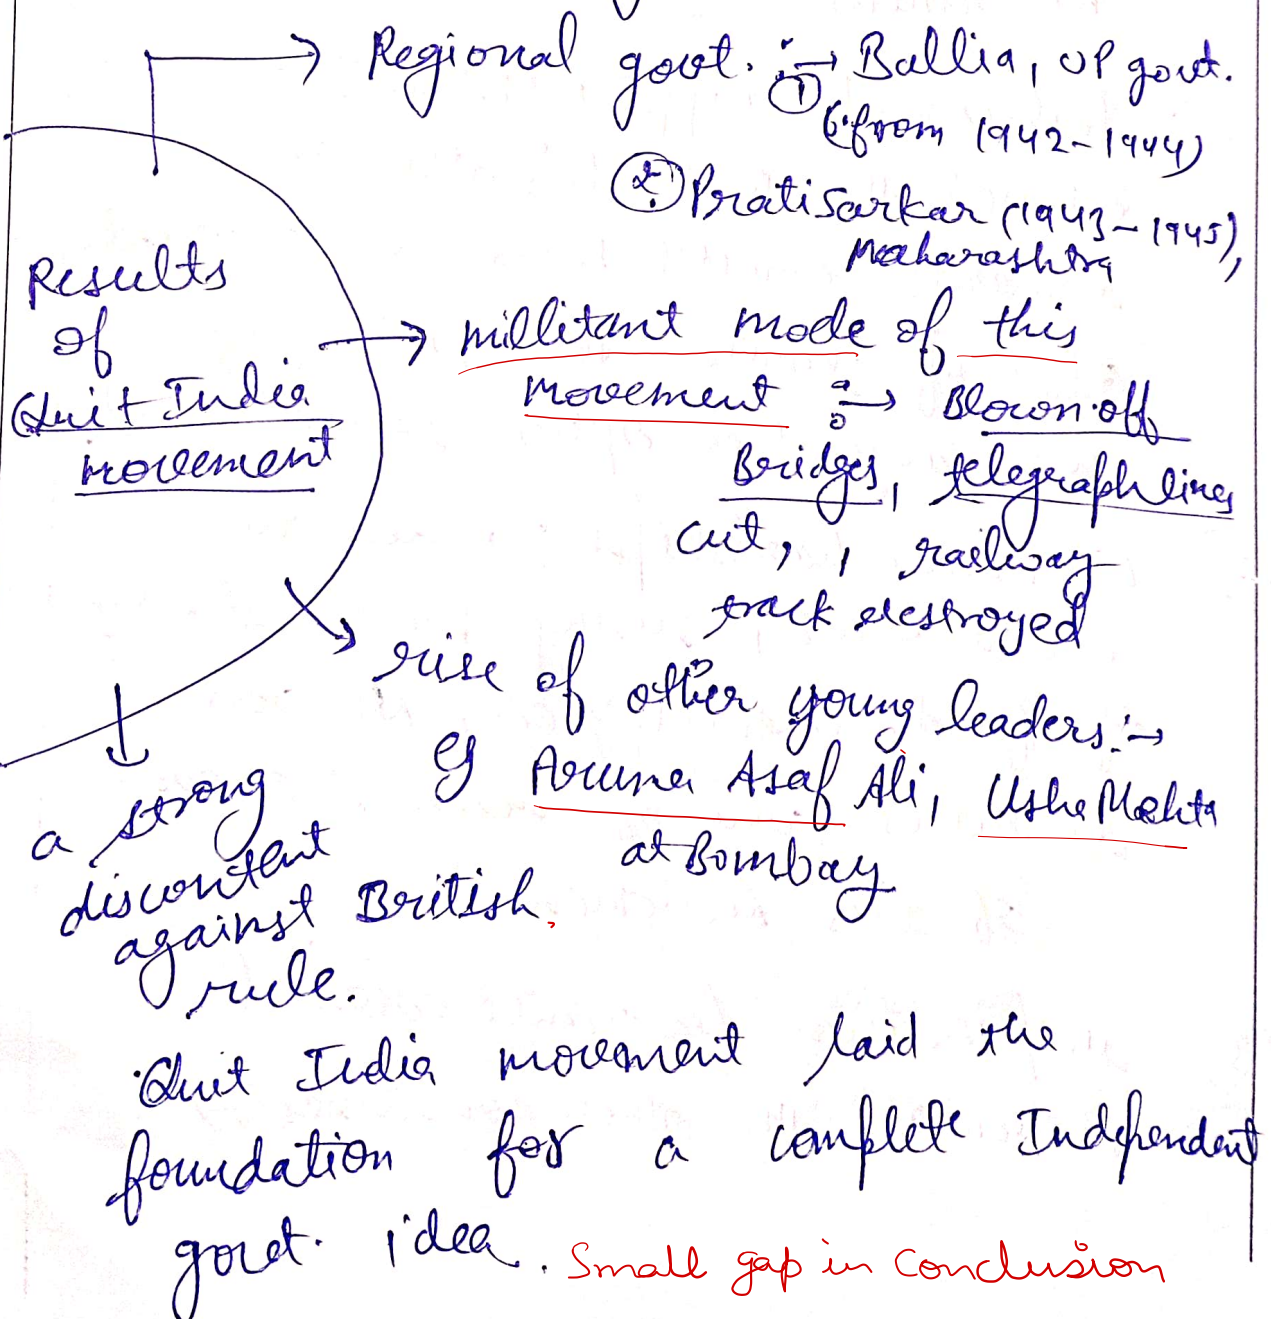 Regional govt. :→ ① Ballia, UP govt.
(from 1942-1944)
② Pratisarkar (1943-1945),
Maharashtra
Results
of
Quit India
movement
millitant mode of this
movement :→ Blown off
Bridges, telegraph lines
cut, , railway
track destroyed
rise of other young leaders :→
eg Aruna Asaf Ali, Usha Mehta
at Bombay
a strong
discontent
against British
rule.
Quit India movement laid the
foundation for a complete Independent
govt. idea. Small gap in Conclusion